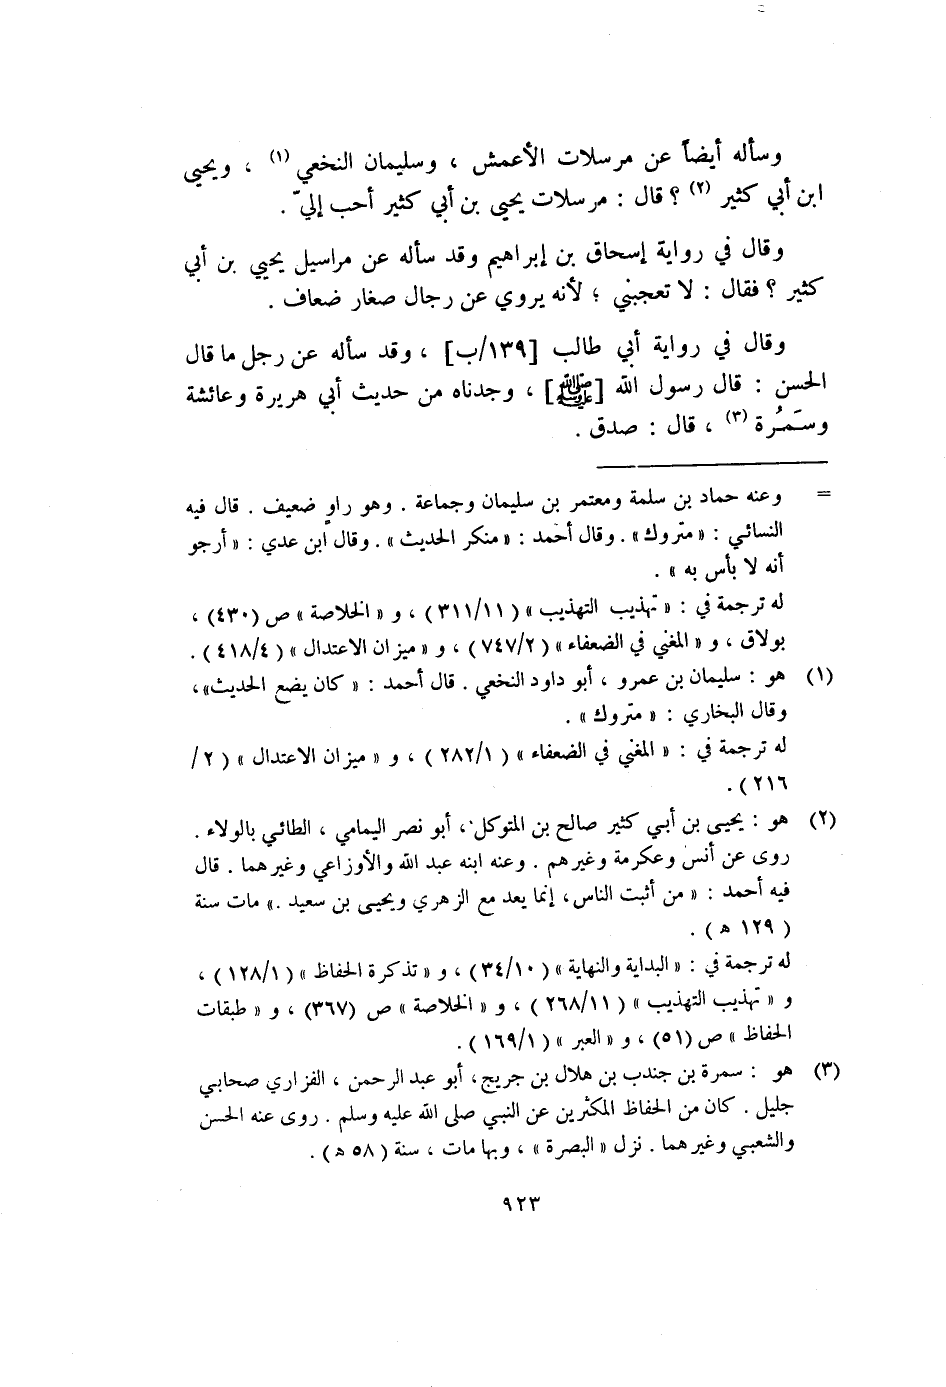 وسأله أيضاً عن مرسلات الأعمش ، وسليمان النخعي (١) ، ويحيى
ابن أبي كثير (٢) ؟ قال : مرسلات يحيى بن أبي كثير أحب إليّ .
وقال في رواية إسحاق بن إبراهيم وقد سأله عن مراسيل يحيى بن أبي
كثير ؟ فقال : لا تعجبني ؛ لأنه يروي عن رجال صغار ضعاف .
وقال في رواية أبي طالب [١٣٩/ب] ، وقد سأله عن رجل ما قال
الحسن : قال رسول الله [ﷺ] ، وجدناه من حديث أبي هريرة وعائشة
وسَمُرة (٣) ، قال : صدق .
= وعنه حماد بن سلمة ومعتمر بن سليمان وجماعة . وهو راوٍ ضعيف . قال فيه
النسائي : « متروك » . وقال أحمد : « منكر الحديث » . وقال ابن عدي : « أرجو
أنه لا بأس به » .
له ترجمة في : « تهذيب التهذيب » ( ٣١١/١١ ) ، و « الخلاصة » ص (٤٣٠) ،
بولاق ، و « المغني في الضعفاء » ( ٧٤٧/٢ ) ، و « ميزان الاعتدال » ( ٤١٨/٤ ) .
(١) هو : سليمان بن عمرو ، أبو داود النخعي . قال أحمد : « كان يضع الحديث» ،
وقال البخاري : « متروك » .
له ترجمة في : « المغني في الضعفاء » ( ٢٨٢/١ ) ، و « ميزان الاعتدال » ( ٢/
٢١٦ ) .
(٢) هو : يحيى بن أبي كثير صالح بن المتوكل ، أبو نصر اليمامي ، الطائي بالولاء .
روى عن أنس وعكرمة وغيرهم . وعنه ابنه عبد الله والأوزاعي وغيرهما . قال
فيه أحمد : « من أثبت الناس ، إنما يعد مع الزهري ويحيى بن سعيد .» مات سنة
( ١٢٩ ه ) .
له ترجمة في : « البداية والنهاية » (٣٤/١٠) ، و « تذكرة الحفاظ » ( ١٢٨/١ ) ،
و « تهذيب التهذيب » ( ٢٦٨/١١ ) ، و « الخلاصة » ص (٣٦٧) ، و « طبقات
الحفاظ » ص (٥١) ، و « العبر » ( ١٦٩/١ ) .
(٣) هو : سمرة بن جندب بن هلال بن جريج ، أبو عبد الرحمن ، الفزاري صحابي
جليل . كان من الحفاظ المكثرين عن النبي صلى الله عليه وسلم . روى عنه الحسن
والشعبي وغيرهما . نزل « البصرة » ، وبها مات ، سنة ( ٥٨ ه ) .
٩٢٣